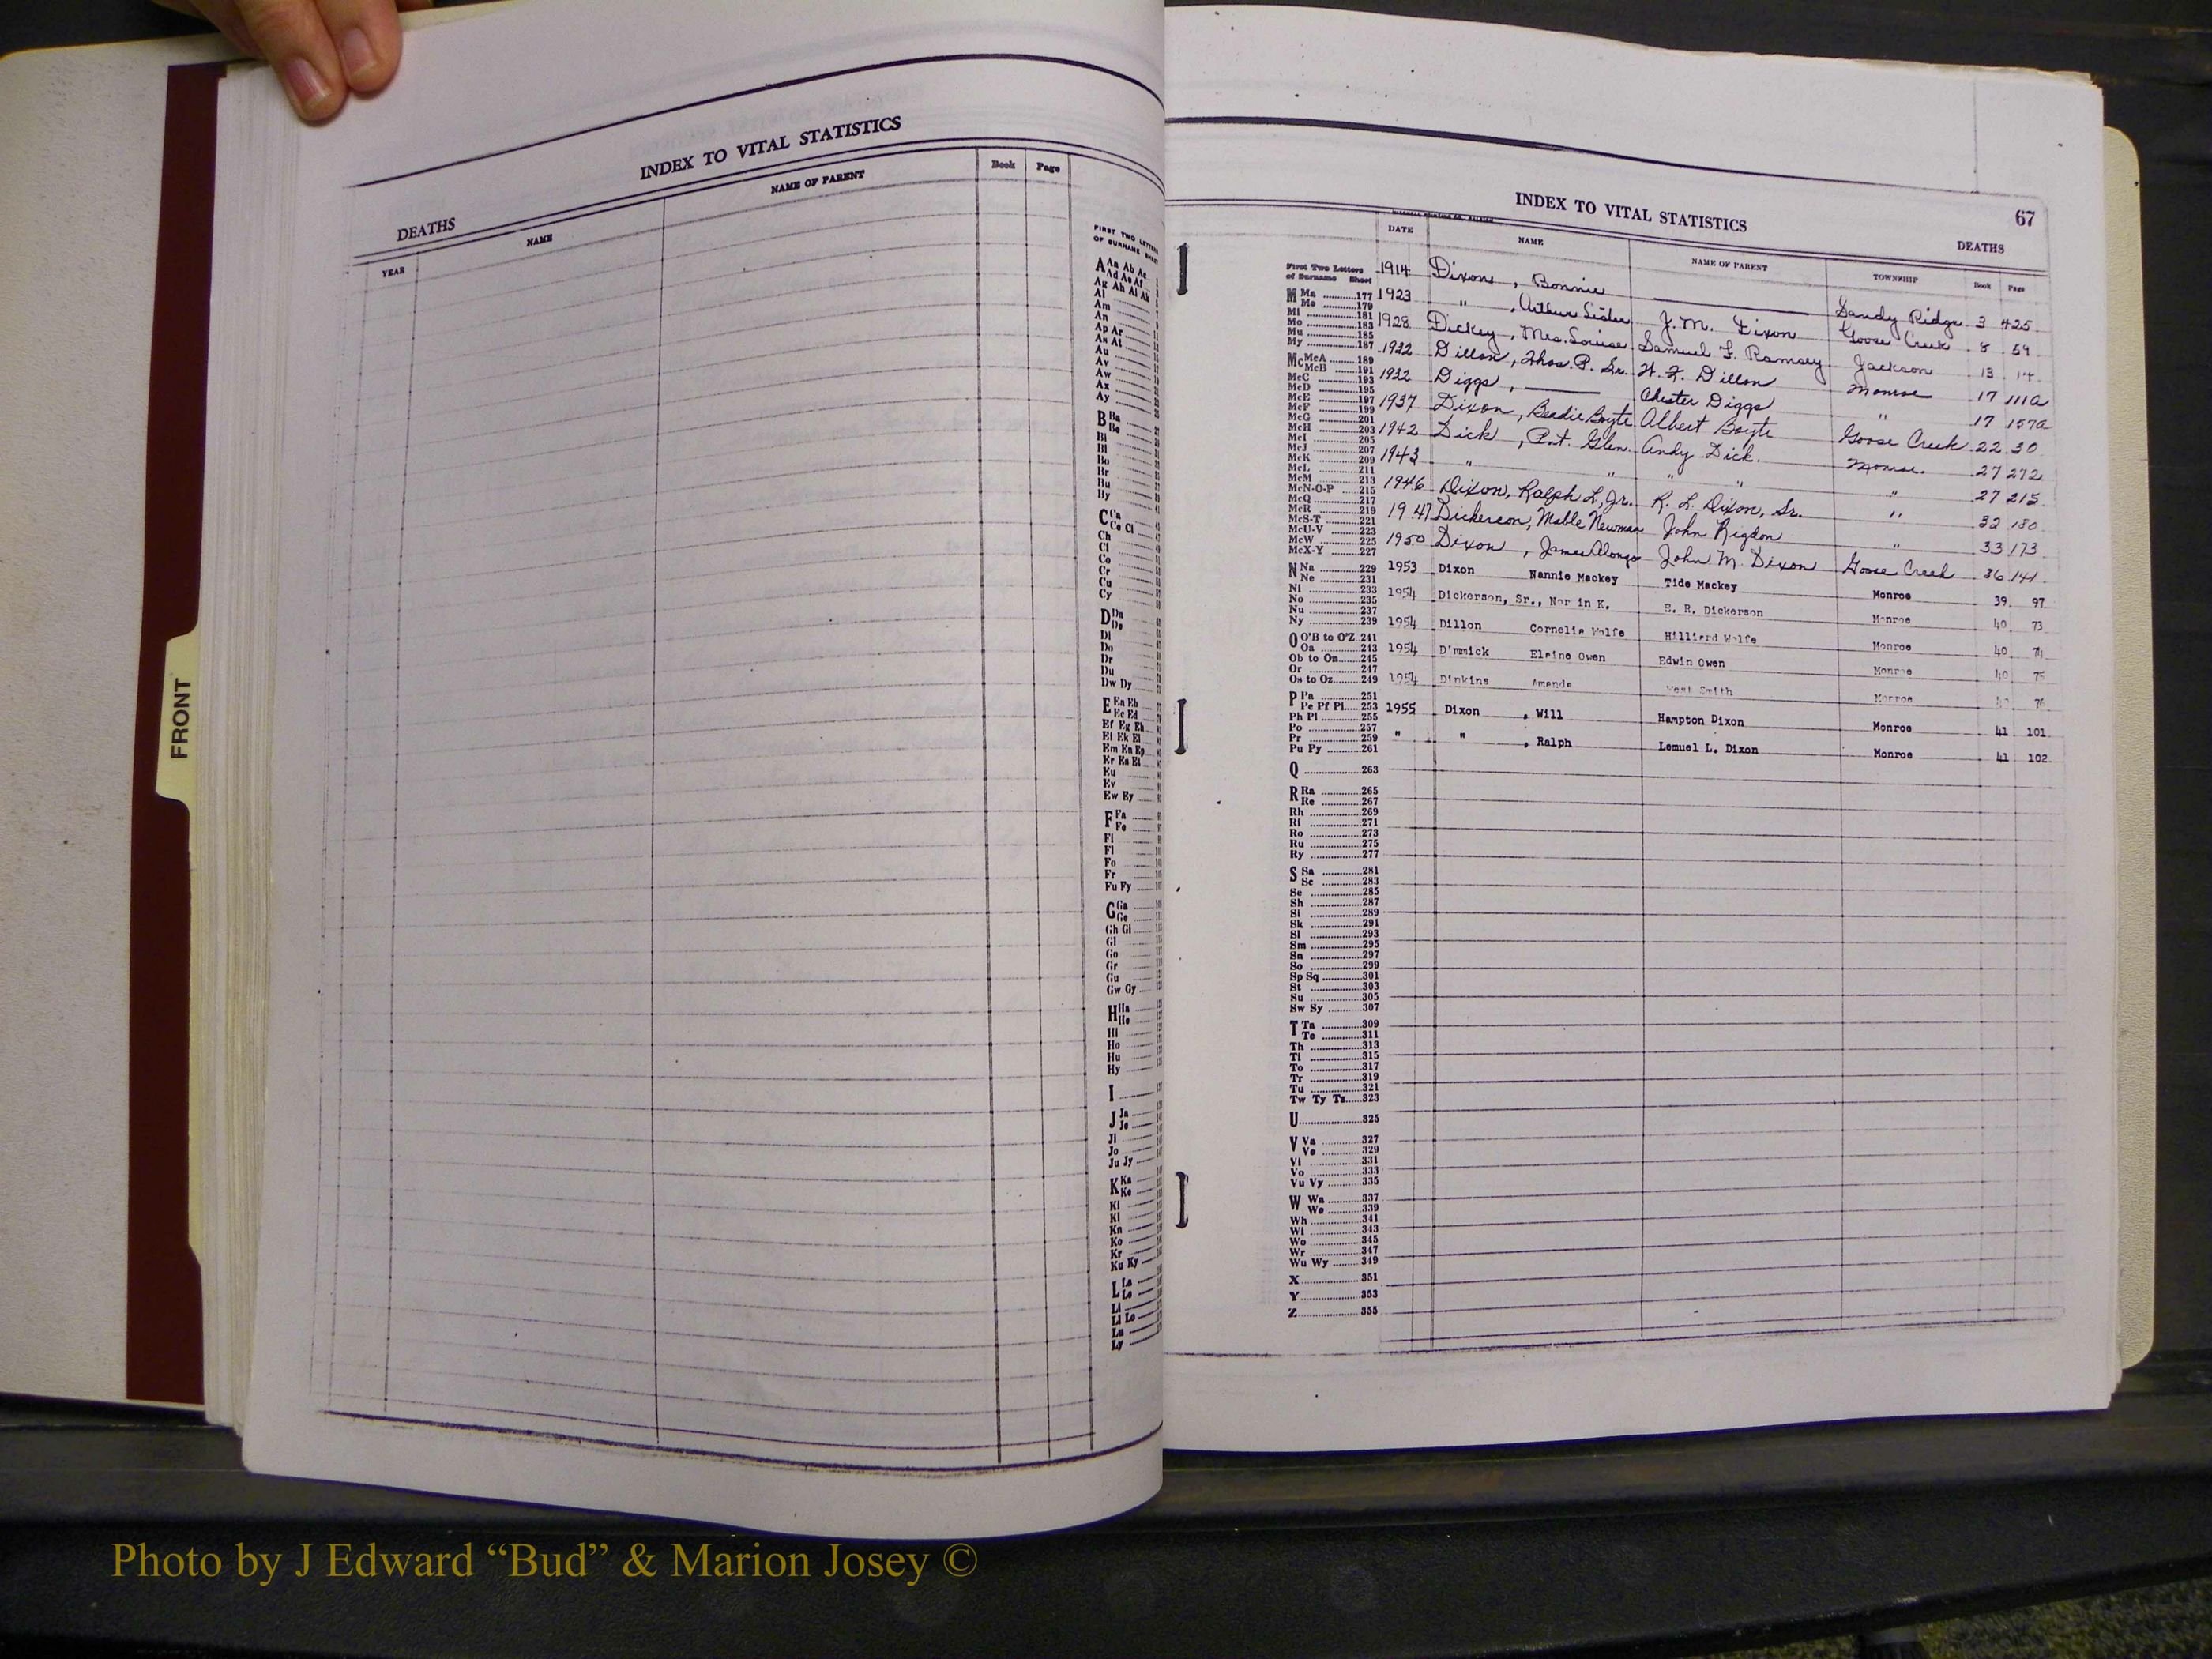 INDEX TO VITAL STATISTICS
DEATHS
YEAR NAME NAME OF PARENT Book Page
FIRST TWO LETTERS
OF SURNAME SHEET
A Aa Ab Ac
Ad Ae Af
Ag Ah Ai Ak
Al
Am
An
Ap Ar
As At
Au
Av
Aw
Ax
Ay
B Ba
Be
Bi
Bl
Bo
Br
Bu
By
C Ca
Ce Ci
Ch
Cl
Co
Cr
Cu
Cy
D Da
De
Di
Do
Dr
Du
Dw Dy
E Ea Eb
Ec Ed
Ef Eg Eh
Ei Ek El
Em En Ep
Er Es Et
Eu
Ev
Ew Ey
F Fa
Fe
Fi
Fl
Fo
Fr
Fu Fy
G Ga
Ge
Gh Gi
Gl
Go
Gr
Gu
Gw Gy
H Ha
He
Hi
Ho
Hu
Hy
I
J Ja
Je
Ji
Jo
Ju Jy
K Ka
Ke
Ki
Kl
Kn
Ko
Kr
Ku Ky
L La
Le
Li
Ll Lo
Lu
Ly
FRONT
INDEX TO VITAL STATISTICS 67
DEATHS
DATE NAME NAME OF PARENT TOWNSHIP Book Page
1914 Dixon, Bonnie Sandy Ridge 3 425
1923 " , Arthur J. M. Dixon Goose Creek 8 54
1928 Dickey, Mrs. Louise Samuel F. Ramsey Jackson 13 14
1932 Dillon, Thos. P. Sr. Dillon Monroe 17 111a
1932 Diggs, Chester Diggs " 17 157a
1937 Dixon, Boyte Albert Boyte Goose Creek 22 30
1942 Dick, Pvt. Glen. Andy Dick. Monroe. 27 272
1943 " " " " " 27 215
1946 Dixon, Ralph L, Jr. R. L. Dixon, Sr. " 32 180
1947 Dickerson, Mable Newman John Rigdon " 33 173
1950 Dixon, James Alonzo John M. Dixon Goose Creek 36 141
1953 Dixon Nannie Mackey Tide Mackey Monroe 39 97
1954 Dickerson, Sr., in K. E. R. Dickerson Monroe 40 73
1954 Dillon Cornelia Wolfe Hilliard Wolfe Monroe 40 74
1954 Elaine Owen Edwin Owen Monroe 40 75
1954 Dinkins Amanda Smith Monroe 76
1955 Dixon , Will Hampton Dixon Monroe 41 101
" " , Ralph Lemuel L. Dixon Monroe 41 102
First Two Letters
of Surname Sheet
M Ma 177
Me 179
Mi 181
Mo 183
Mu 185
My 187
Mc McA 189
McB 191
McC 193
McD 195
McE 197
McF 199
McG 201
McH 203
McI 205
McJ 207
McK 209
McL 211
McM 213
McN-O-P 215
McQ 217
McR 219
McS-T 221
McU-V 223
McW 225
McX-Y 227
N Na 229
Ne 231
Ni 233
No 235
Nu 237
Ny 239
O O'B to O'Z 241
Oa 243
Ob to On 245
Or 247
Os to Oz 249
P Pa 251
Pe Pf Pi 253
Ph Pl 255
Po 257
Pr 259
Pu Py 261
Q 263
R Ra 265
Re 267
Rh 269
Ri 271
Ro 273
Ru 275
Ry 277
S Sa 281
Sc 283
Se 285
Sh 287
Si 289
Sk 291
Sl 293
Sm 295
Sn 297
So 299
Sp Sq 301
St 303
Su 305
Sw Sy 307
T Ta 309
Te 311
Th 313
Ti 315
To 317
Tr 319
Tu 321
Tw Ty Tz 323
U 325
V Va 327
Ve 329
Vi 331
Vo 333
Vu Vy 335
W Wa 337
We 339
Wh 341
Wi 343
Wo 345
Wr 347
Wu Wy 349
X 351
Y 353
Z 355
Photo by J Edward “Bud” & Marion Josey ©